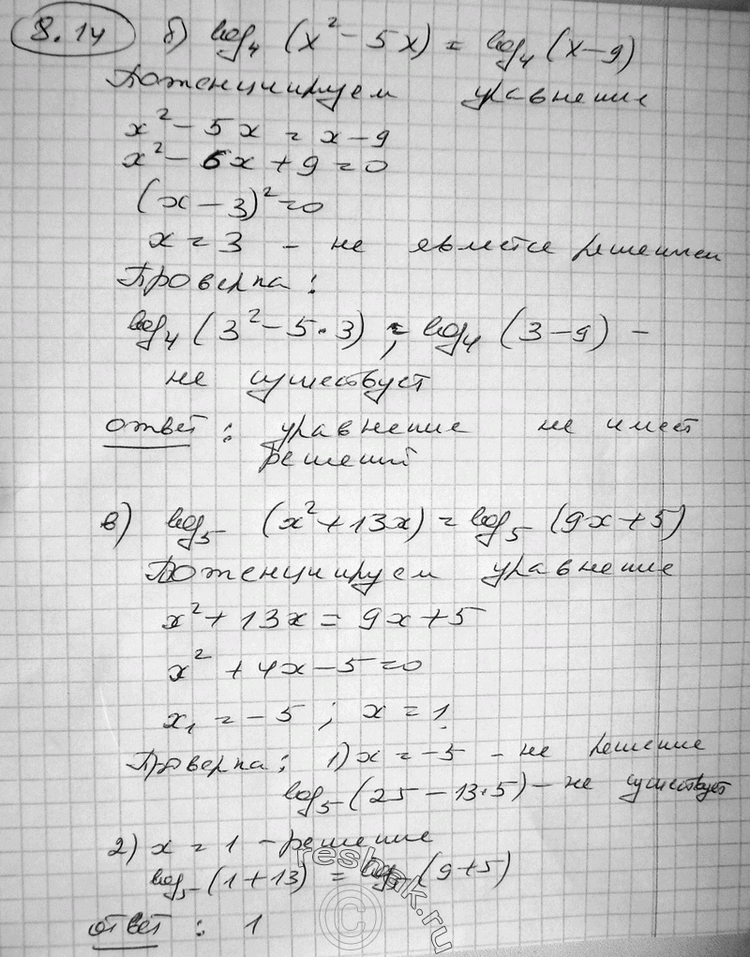 8.14 б) log₄ (x² - 5x) = log₄ (x-9)
Потенцируем уравнение
x² - 5x = x - 9
x² - 6x + 9 = 0
(x - 3)² = 0
x = 3 - не является решением
Проверка:
log₄ (3² - 5·3) = log₄ (3 - 9) -
не существует
ответ: уравнение не имеет
решений
в) log₅ (x² + 13x) = log₅ (9x + 5)
Потенцируем уравнение
x² + 13x = 9x + 5
x² + 4x - 5 = 0
x₁ = -5 ; x = 1
Проверка: 1) x = -5 - не решение
log₅ (25 - 13·5) - не существует
2) x = 1 - решение
log₅ (1 + 13) = log₅ (9 + 5)
ответ: 1
reshak.ru
©